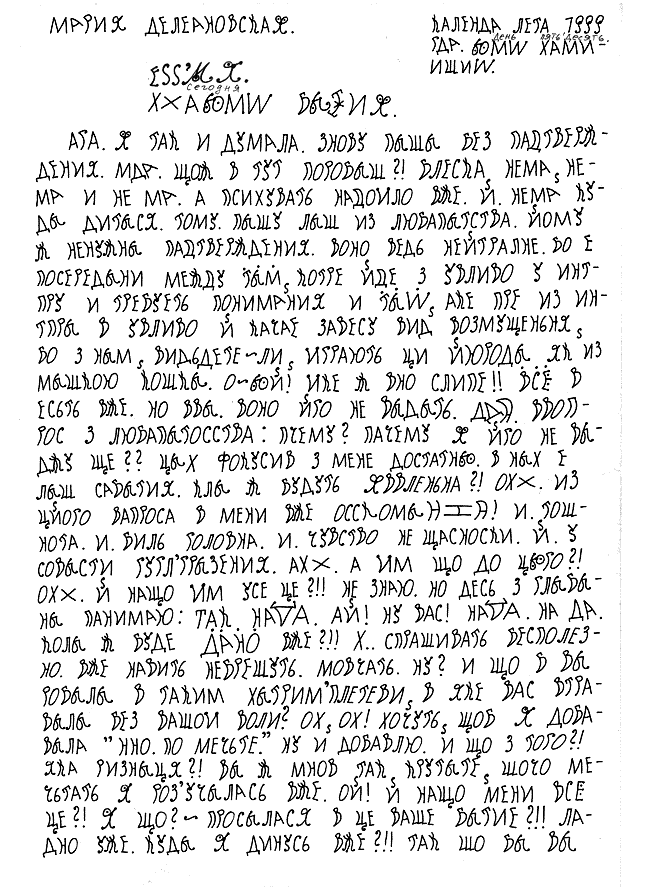 МАРИЯ ДЕЛЕАНОВСКАЯ.
КАЛЕНДА ЛЕТА 1999
день пять десять
ГДР. ВОМW ХАМИ-
ИШИW.
Сегодня
АГА. Я ТАК И ДУМАЛА. ЗНОВУ ПЫШЫ БЕЗ ПАДТВЕРЖ-
ДЕНИЯ. МДА. ЩОЖ В ТУТ ПОРОБЫШ?! БЛЕСКА, НЕМА, НЕ-
МА И НЕ МА. А ПСИХУВАТЬ НАДОИЛО ВЖЕ. Й. НЕМА КУ-
ДЫ ДИТЫСЯ. ТОМУ. ПЫШУ ЛЫШ ИЗ ЛЮБАПЫТСТВА. ЙОМУ
Ж НЕНУЖНЫ ПАДТВЕРЖДЕНИЯ. ВОНО ВЕДЬ НЕЙТРАЛНЕ. БО Е
ПОСЕРЕДЫНИ МЕЖДУ ТЫМ, КОТРЕ ЙДЕ З УВЛИВО У ИНТ-
РЫ И ТРЕБУЕТЬ ПОНИМАНИЯ И ТЫМ, АКЕ ПРЕ ИЗ ИН-
ТРЫ В УВЛИВО Й КАЧАЕ ЗАВЕСУ ВИД ВОЗМУЩЕНЬНЯ,
БО З НЫМ, ВИДЬДЕТЕ~ЛИ, ИГРАЮТЬ ЦИ ЙЮРОДЫ ЯК ИЗ
МЫШКОЮ КОШКЫ. О~ВОЙ! ИКЕ Ж ВНО СЛИПЕ!! ВСЁ В
ЕСЬТЬ ВЖЕ. НО ВВЫ. ВОНО ЙГО НЕ ВЫДЫТЬ. ВВОП-
РОС З ЛЮБАПЫТОССТВА: ПЧЕМУ? ПАЧЕМУ Я ЙГО НЕ ВЫ-
ДЖУ ЩЕ?? ЦЫХ ФОКУСИВ З МЕНЕ ДОСТАТНЬО. В НЫХ Е
ЛЫШ САБЫТИЯ. КЛЫ Ж БУДУТЬ ЯВВЛЕНЬНА?! ОХ×. ИЗ
ЦЙОГО ВАПРОСА В МЕНИ ВЖЕ ОССКОМЫНА! И. ТОШ-
НОТА. И. БИЛЬ ГОЛОВНА. И. ЧУВСТВО НЕ ЩАСНОСКИ. И. У
СОВЫСТИ УГГРЫЗЕНИЯ. АХ×. А ИМ ЩО ДО ЦЬОГО?!
ОХ×. Й НАЩО ИМ УСЕ ЦЕ?!! НЕ ЗНАЮ. НО ДЕСЬ З ГЛЫБЫ-
НЫ ПАНИМАЮ: ТАК. НАДА. АЙ! НУ ВАС! НАДА. НА ДА.
КОЛЫ Ж БУДЕ ДАНО ВЖЕ?!! Х.. СПРАШИВАТЬ БЕСПОЛЕЗ-
НО. ВЖЕ НАВИТЬ НЕБРЕШУТЬ. МОВЧАТЬ. НУ? И ЩО В ВЫ
РОБЫЛЫ В ТАКИМ ХЫТРИМ'ПЛЕТЕВИ, В ЯКЕ ВАС ВТРА-
ВЫЛЫ БЕЗ ВАШОИ ВОЛИ? ОХ, ОХ! ХОЧУТЬ, ЩОБ Я ДОБА-
ВЫЛА "ННО. ПО МЕЧЬТЕ." НУ И ДОБАВЛЮ. И ЩО З ТОГО?!
ЯКА РИЗНЫЦЯ?! ВЫ Ж МНОВ ТАК, КРУТЫТЕ, ШОЧО МЕ-
ЧЬТАТЬ Я РОЗ'УЧЫЛАСЬ ВЖЕ. ОЙ! И НАЩО МЕНИ ВСЕ
ЦЕ?! Я ЩО?~ ПРОСЫЛАСЯ В ЦЕ ВАШЕ БЫТИЕ?!! ЛА-
ДНО УЖЕ. КУДЫ Я ДИНУСЬ ВЖЕ?!! ТАК ЩО ВЫ БЫ